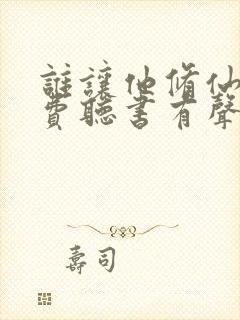 誰讓他脩仙
費聽書有聲
壽司